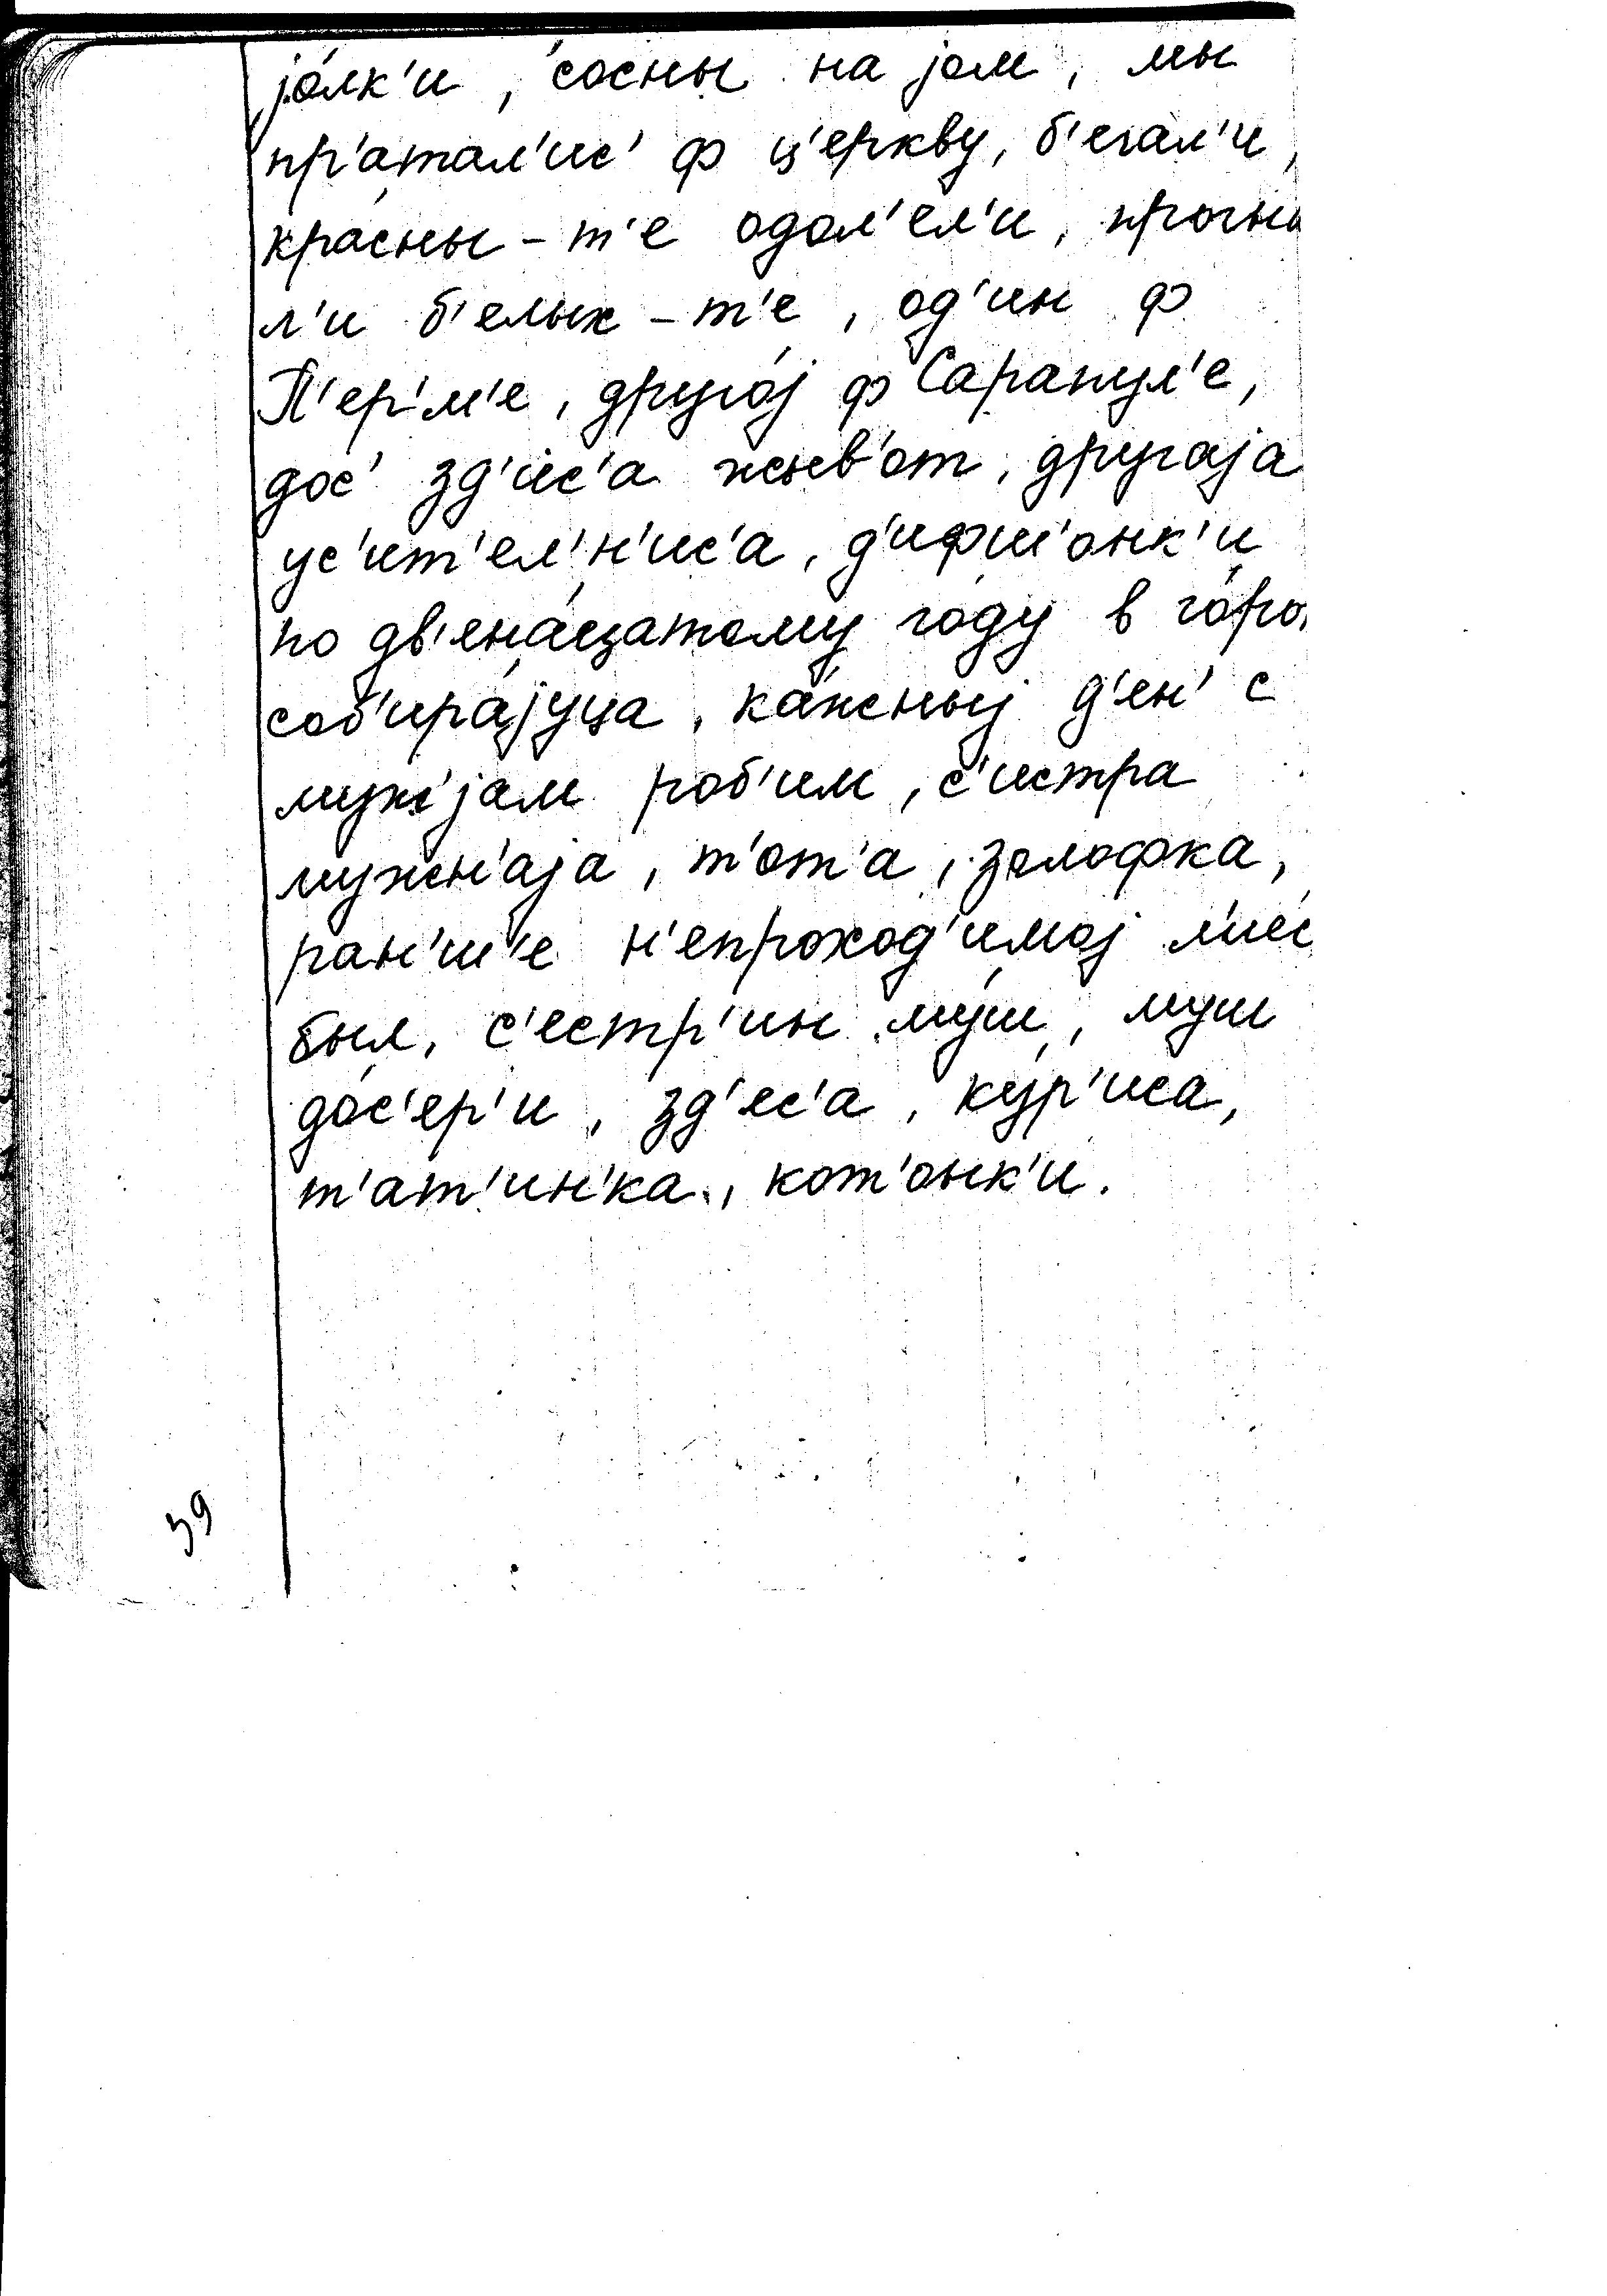 јо́лк'и, со́сны на јом, мы
пр'атал'ис' ф ц'еркву, б'егал'и,
кра́сны-т'е одол'ел'и, прогна
л'и б'елых-т'е, од'ин ф
П'ер'м'е, друго́ј ф Сарапул'е,
дос' зд'ис'а жыв'от, другаја
ус'ит'ел'н'ис'а, д'ифш'онк'и
по дв'ена́цатому го́ду в го́ро
соб'ира́јуца, ка́жныј д'ен' с
муж'јам роб'им, с'истра
мужн'аја, т'от'а, золофка,
ран'ш'е н'епроход'имој л'ис
был, с'естр'ин му́ш, муш
до́с'ер'и, зд'ес'а, ку́р'иса,
т'ат'ин'ка, кот'онк'и.
39